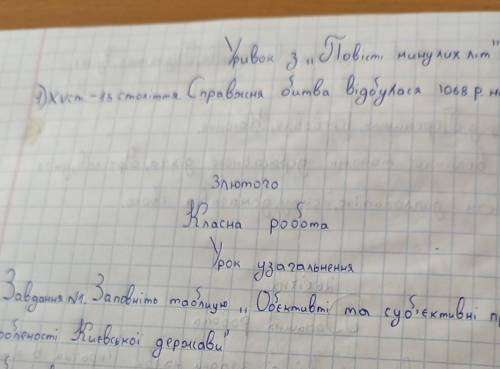 Уривок з „Повісті минулих літ"
1) XV ст - 13 століття. Справжня битва відбулася 1068 р.
3 лютого
Класна робота
Урок узагальнення
Завдання №1. Заповніть таблицю „Обєктивті та суб'єктивні
Київської держави"